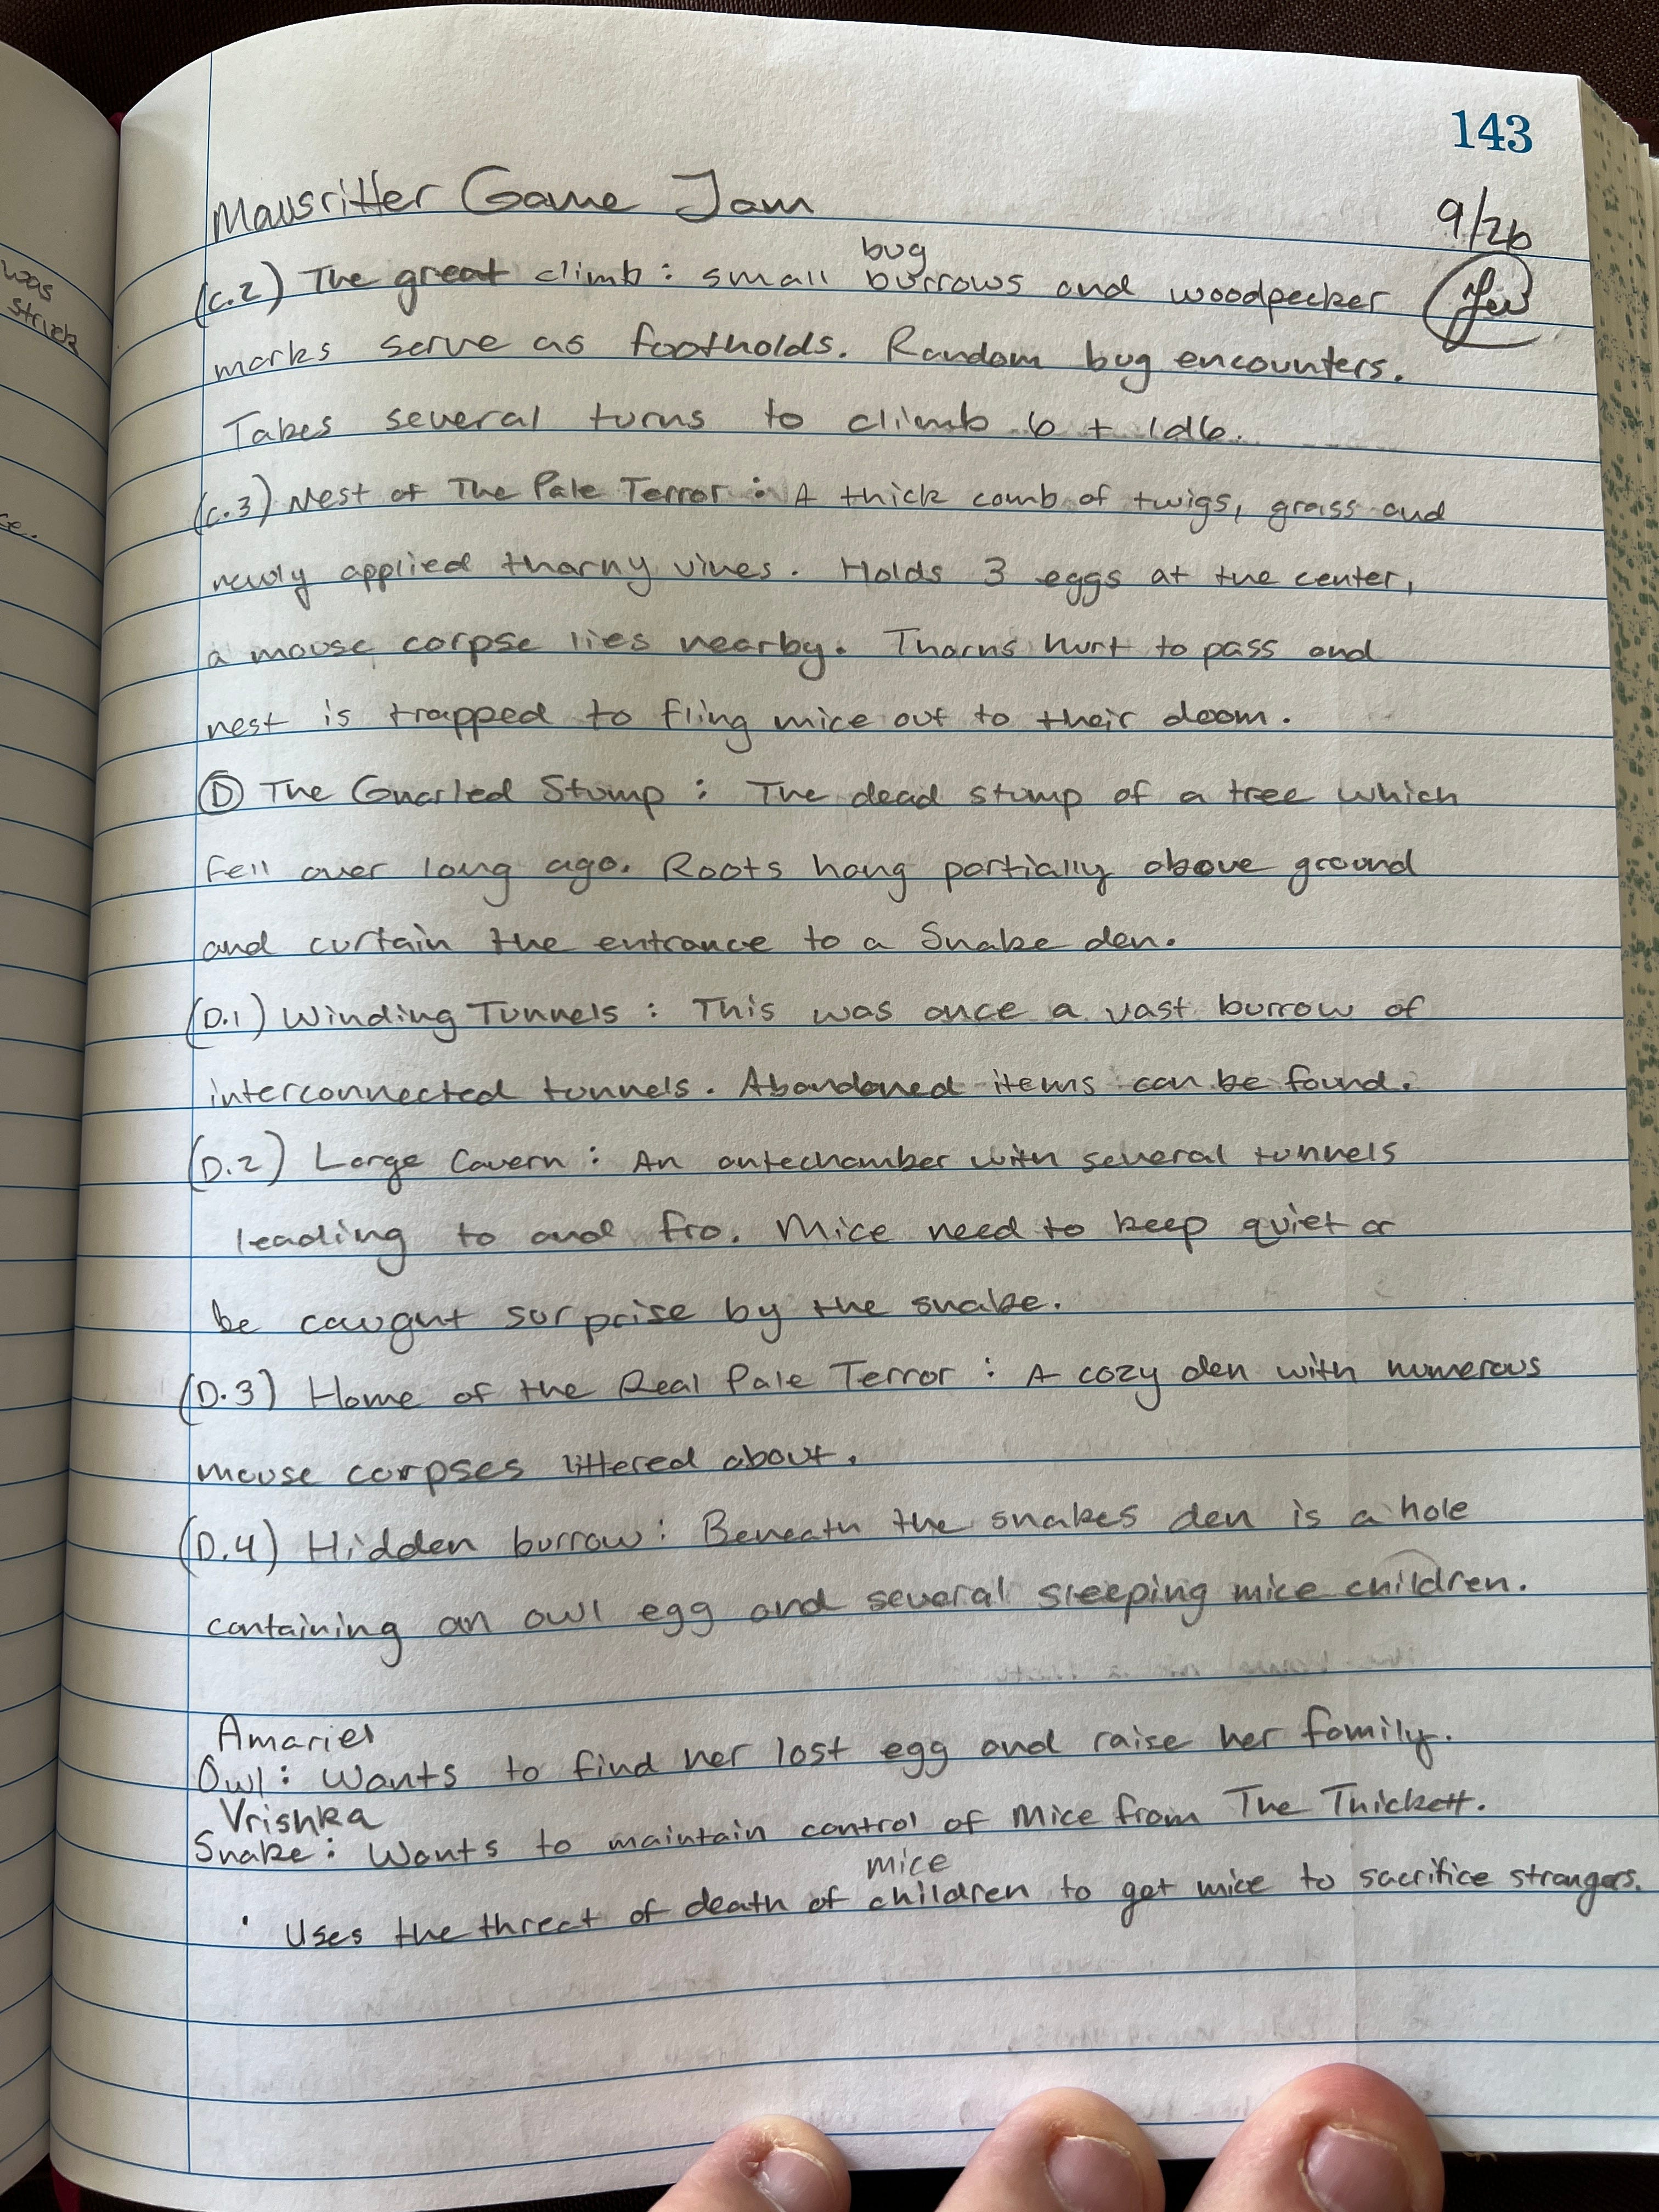 143
Mausritter Game Jam
9/26
bug
(C.2) The great climb : small burrows and woodpecker
marks serve as footholds. Random bug encounters.
Takes several turns to climb 6 + 1d6.
(C.3) Nest of The Pale Terror : A thick comb of twigs, grass and
newly applied thorny vines. Holds 3 eggs at the center,
a mouse corpse lies nearby. Thorns hurt to pass and
nest is trapped to fling mice out to their doom.
(D) The Gnarled Stump : The dead stump of a tree which
fell over long ago. Roots hang partially above ground
and curtain the entrance to a Snake den.
(D.1) Winding Tunnels : This was once a vast burrow of
interconnected tunnels. Abandoned items can be found.
(D.2) Large Cavern : An antechamber with several tunnels
leading to and fro. Mice need to keep quiet or
be caught surprise by the snake.
(D.3) Home of the Real Pale Terror : A cozy den with numerous
mouse corpses littered about.
(D.4) Hidden burrow : Beneath the snakes den is a hole
containing an owl egg and several sleeping mice children.
Amariel
Owl : Wants to find her lost egg and raise her family.
Vrishka
Snake : Wants to maintain control of Mice from The Thickett.
mice
· Uses the threat of death of children to get mice to sacrifice strangers.
was
struck
ce.